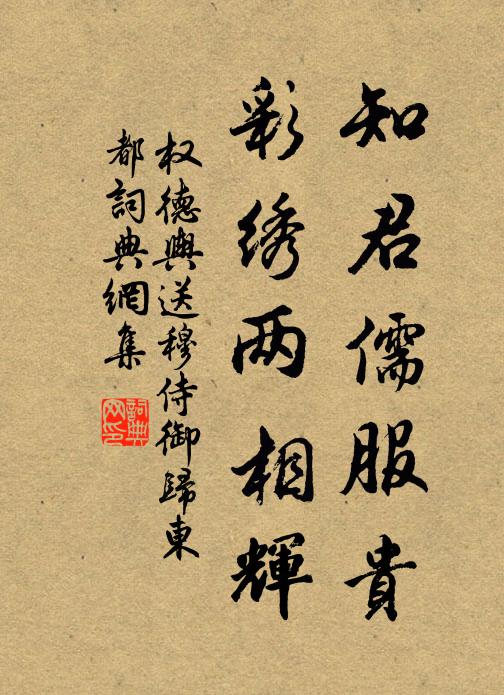 知君儒服貴
彩绣两相輝
权德輿送穆侍御歸東
都詞典網集
詞典
网印